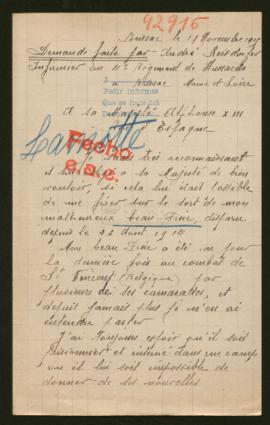 92915
le 17 Novembre 1917
Demande faite par André
Infirmier au Régiment de Hussards
à Maine et Loire
Pedir informes
A sa Majesté Alphonse XIII
Espagne
Lamotte
Fecho
très reconnaissant
à sa Majesté de bien
vouloir, si cela lui était possible
de me fixer sur le sort de mon
malheureux beau-frère, disparu
depuis le 22 Août 1914
Mon beau frère a été vu pour
la dernière fois au combat de
St Vincent (Belgique) par
plusieurs de ses camarades, et
depuis jamais plus je n'en ai
entendu parler
J'ai toujours espoir qu'il soit
prisonnier et interné dans un camp
où il lui soit impossible de
donner de ses nouvelles